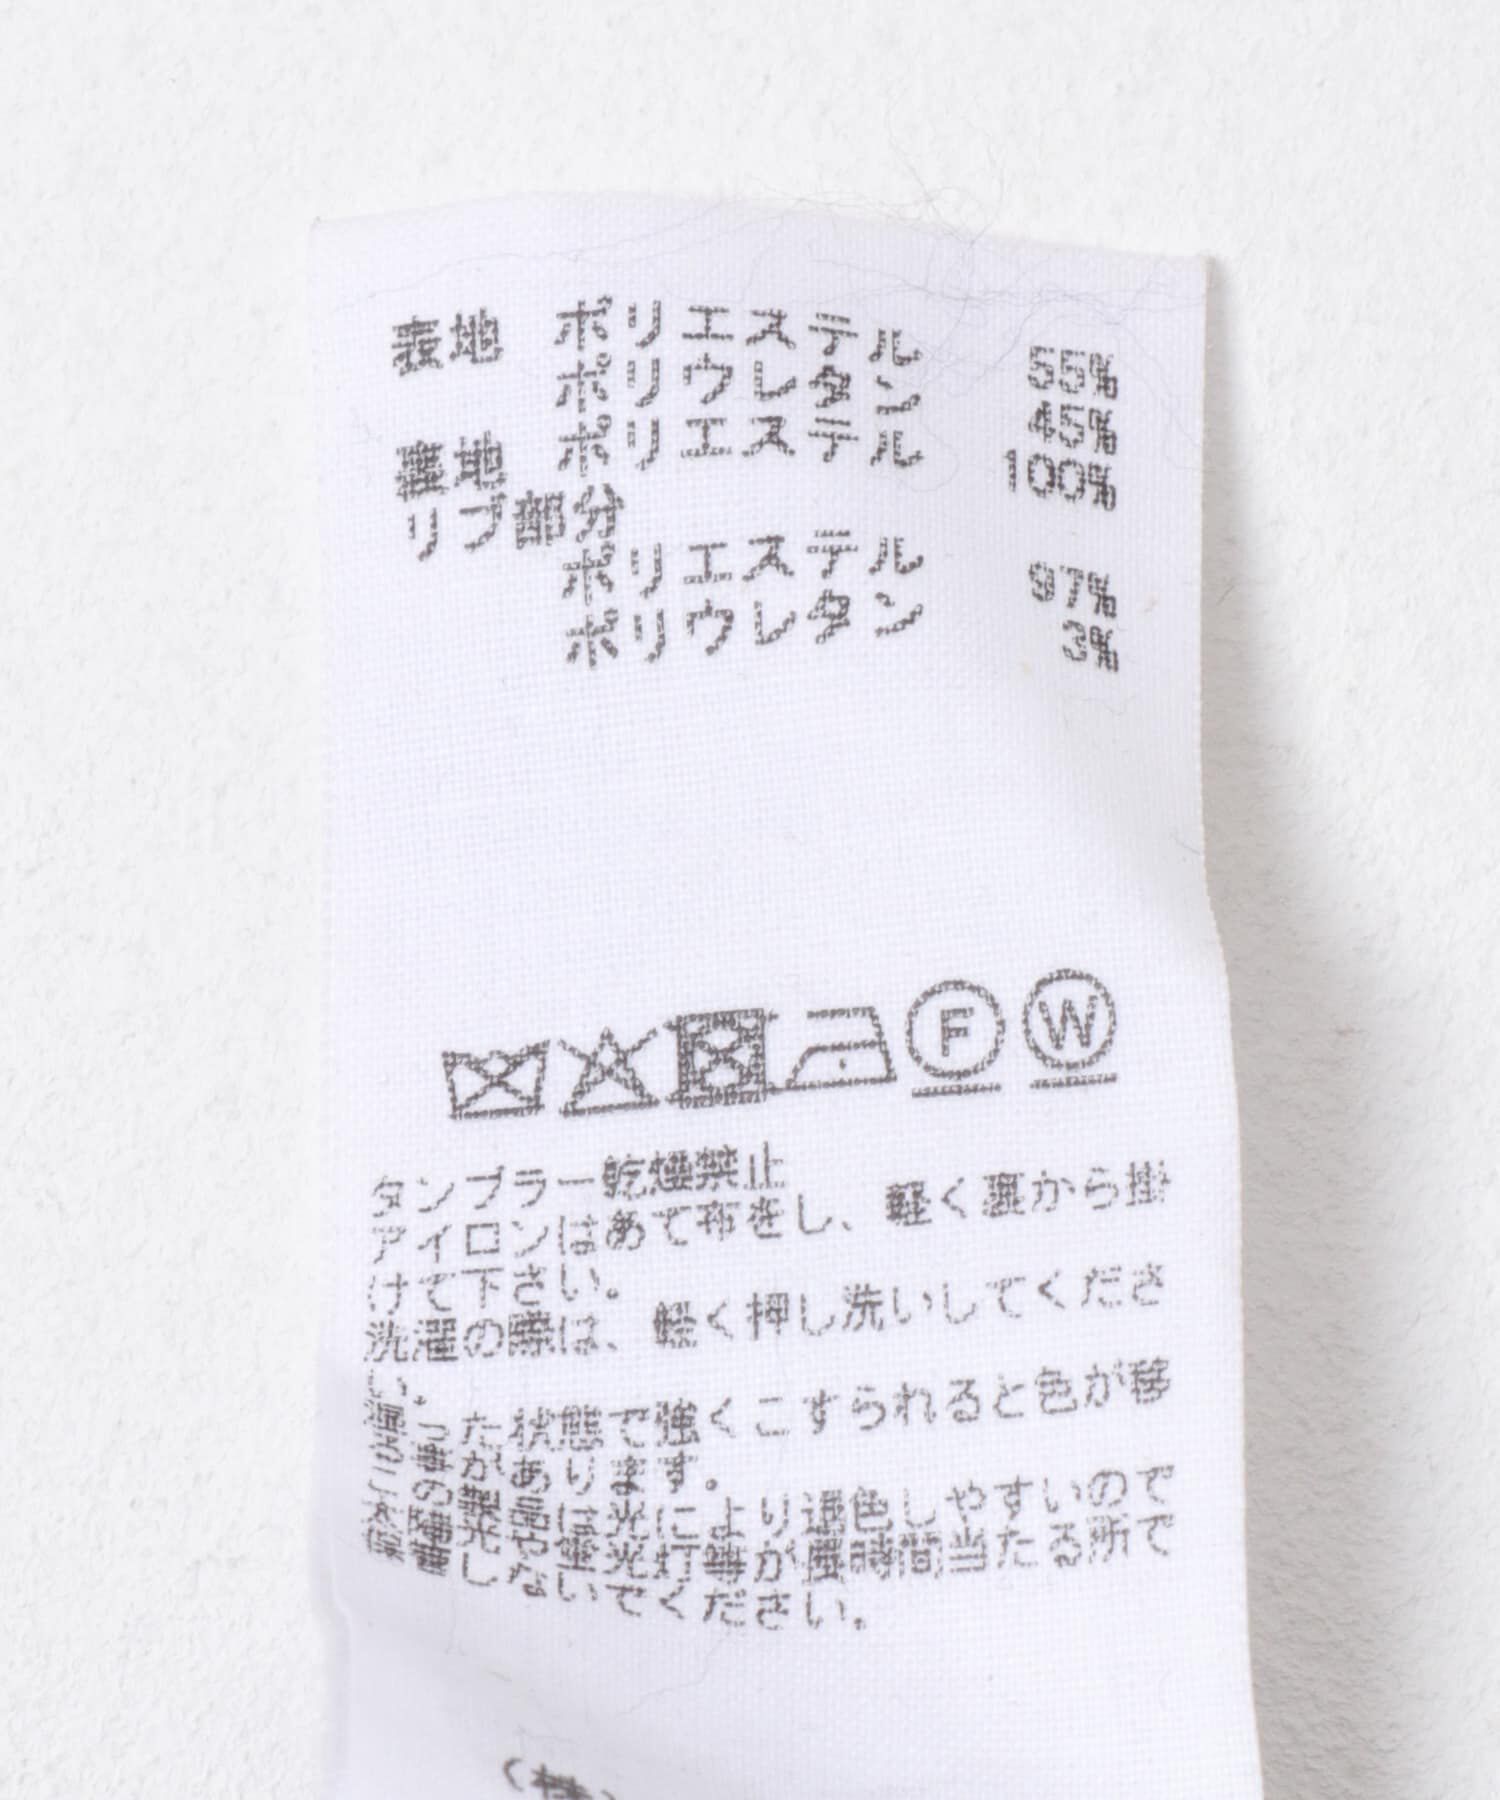 表地 ポリエステル 55%
ポリウレタン 45%
裏地 ポリエステル 100%
リブ部分
ポリエステル 97%
ポリウレタン 3%
F W
タンブラー乾燥禁止
アイロンはあて布をし、軽く裏から掛
けて下さい。
洗濯の際は、軽く押し洗いしてくださ
い。
湿った状態で強くこすられると色が移
る事があります。
この製品は光により退色しやすいので
保管や蛍光灯等が長時間当たる所で
しないでください。